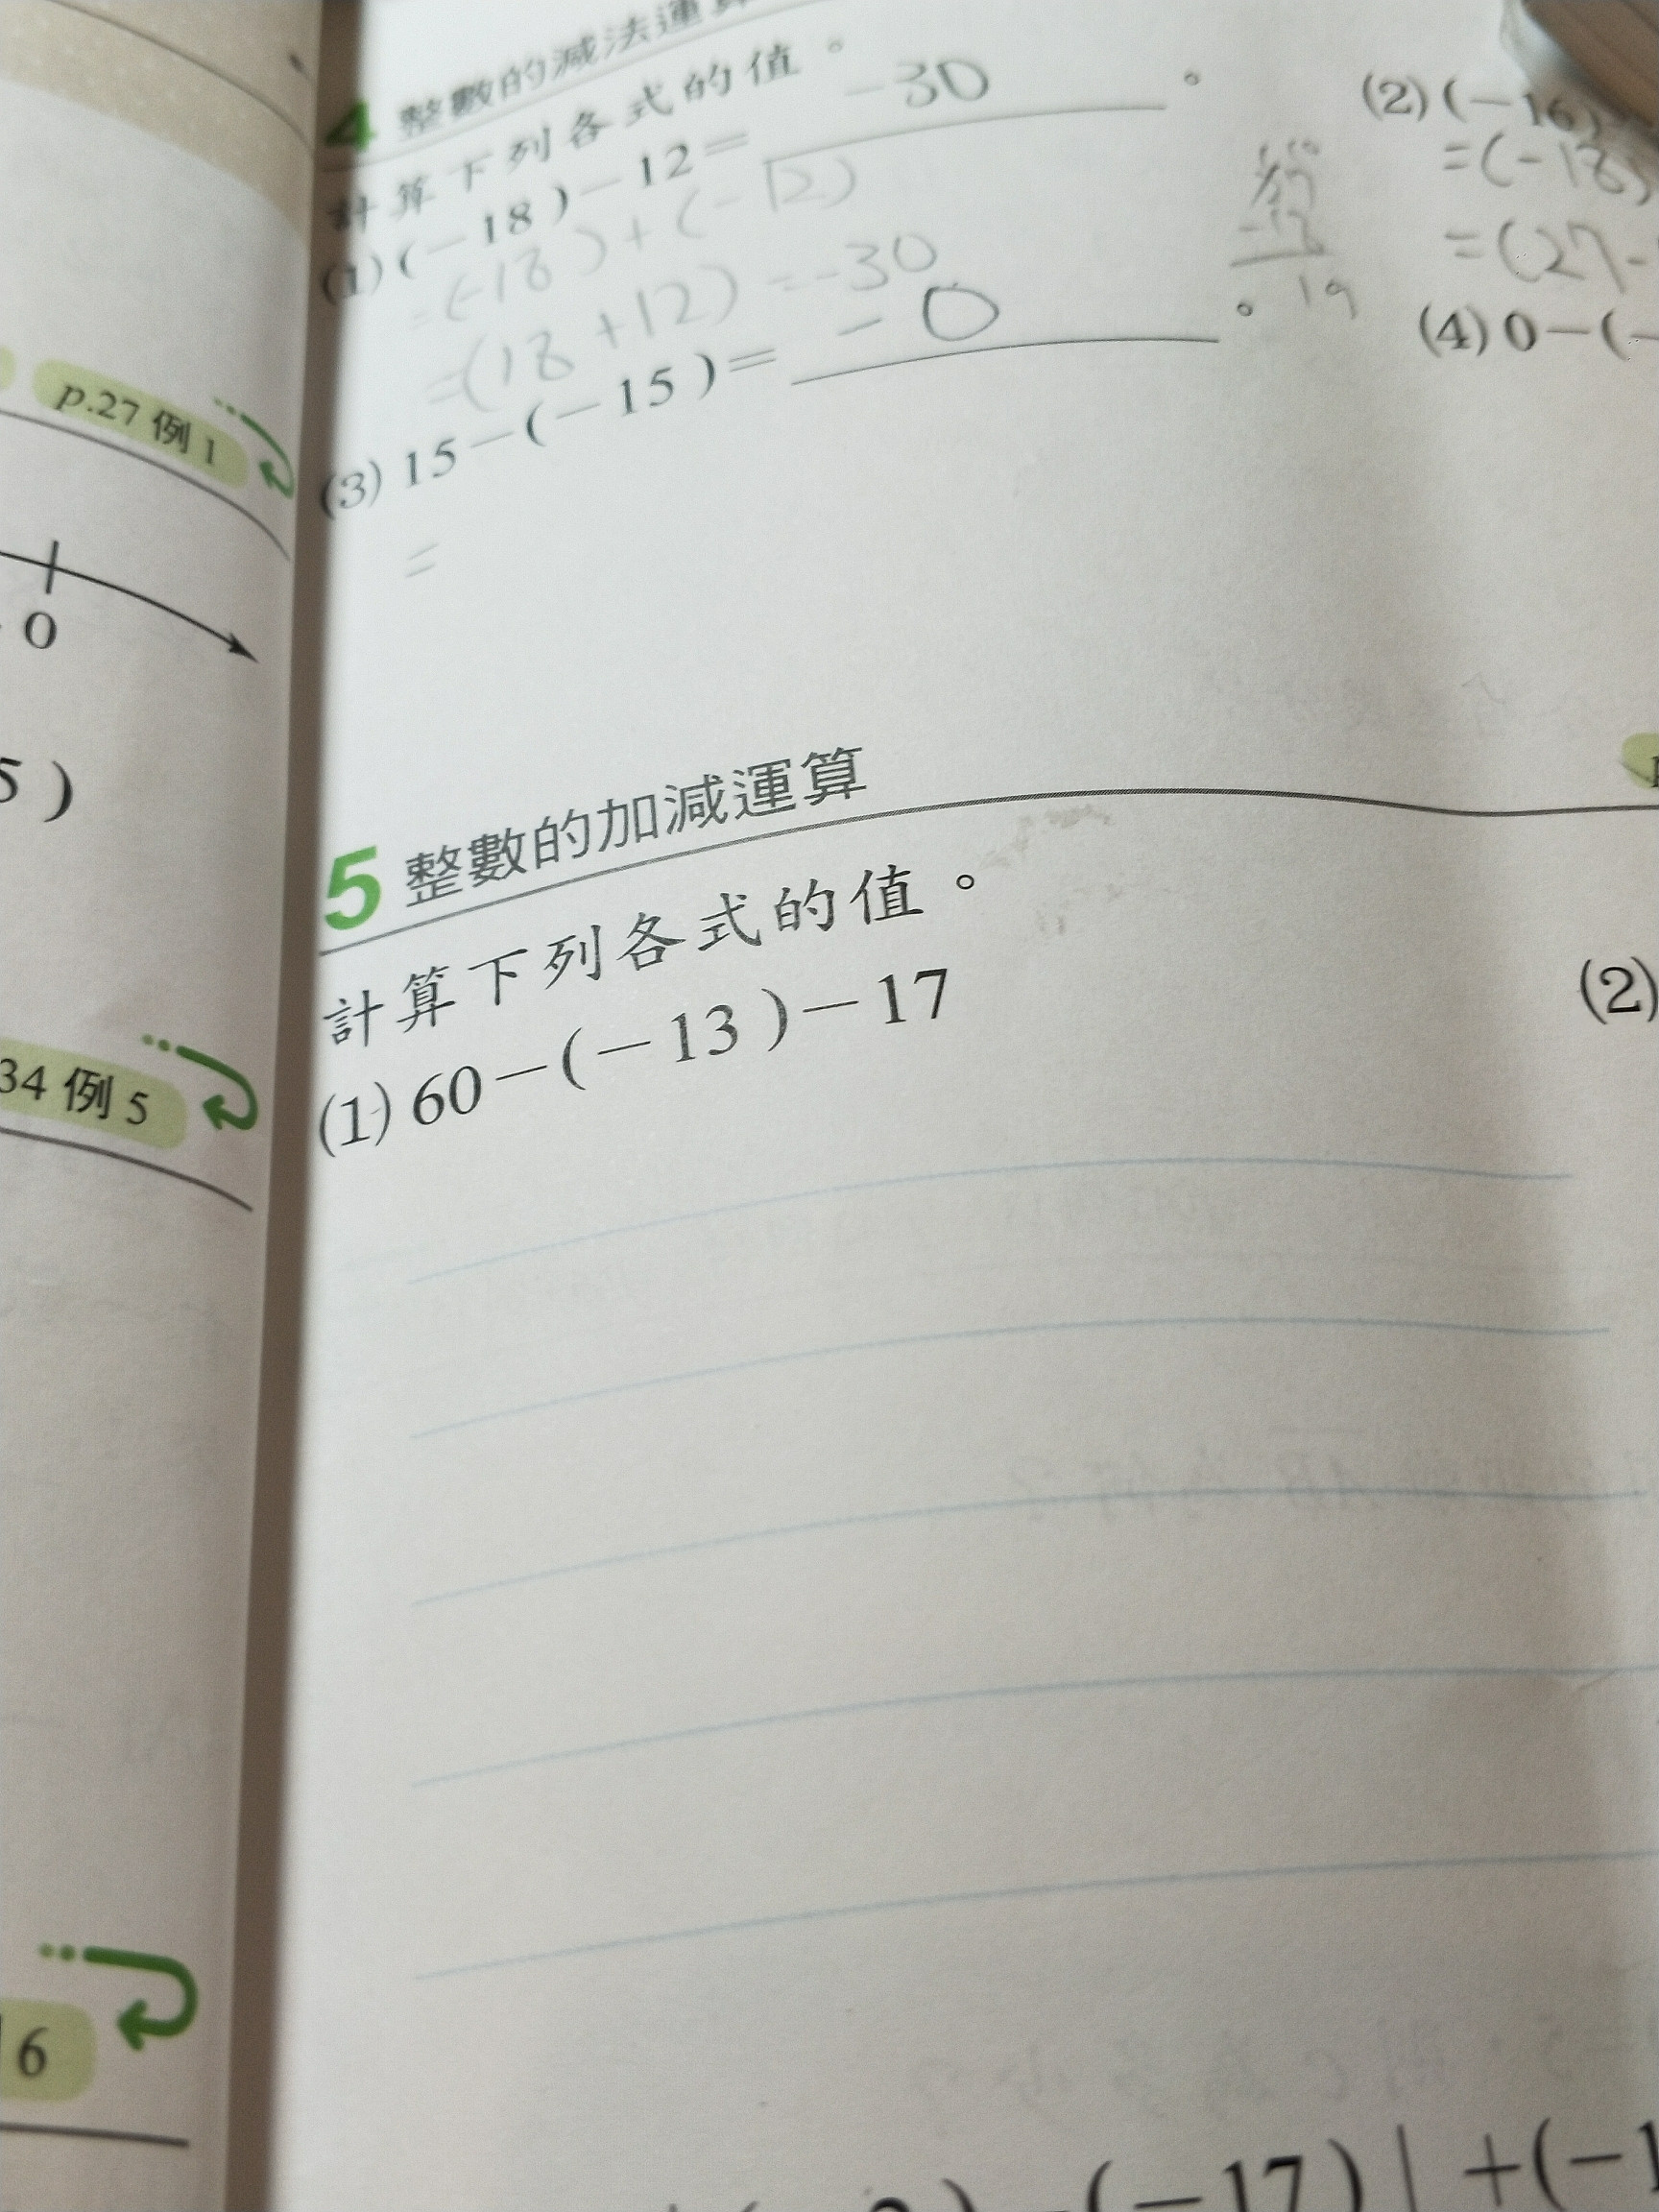 p.27 例 1
0
5 )
34 例 5
6
4 整數的減法運算
計算下列各式的值。
(1) (-18)-12= -30 。
=(-18)+(-12)
=(18+12)=-30
(3) 15-(-15)= -0 。
=
19
(2) (-16)
=(-18)
=(27-
(4) 0-(-
5 整數的加減運算
計算下列各式的值。
(1) 60-(-13)-17
(2)
-(-17)|+(-1